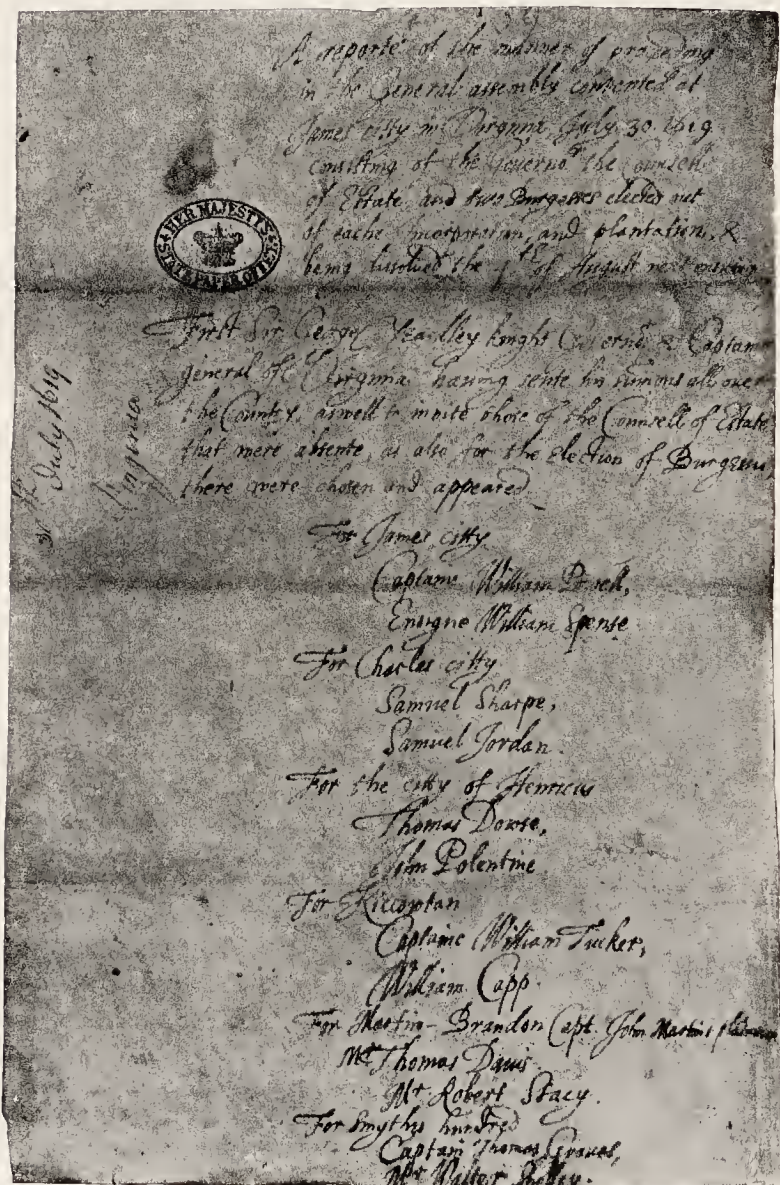 A reporte of the manner of proceeding
in the General assembly convented at
James citty in Virginia, July 30. 1619
consisting of the Governor, the Counsell
of Estate, and two Burgesses elected out
of eache Incorporation, and plantation, &
being dissolved the 4th of August next ensuing
HER MAJESTY'S
STATE PAPER OFFICE
First Sir George Yeardley knight Governor & Captaine
general of Virginia having sente his sumons all over
the Country, aswell to invite those of the Counsell of Estate
that were absente, as also for the election of Burgesses,
there were chosen and appeared
30th July 1619
Virginia
For James citty
Captaine William Powell,
Ensigne William Spense
For Charles citty
Samuel Sharpe,
Samuel Jordan.
For the citty of Henricus
Thomas Dowse,
John Polentine
For Kiccowtan
Captaine William Tucker,
William Capp
For Martin-Brandon Capt. John Martins
Mr Thomas Davis
Mr Robert Stacy.
For Smythes hundred
Captain Thomas Graves,
Mr Walter Shelley.